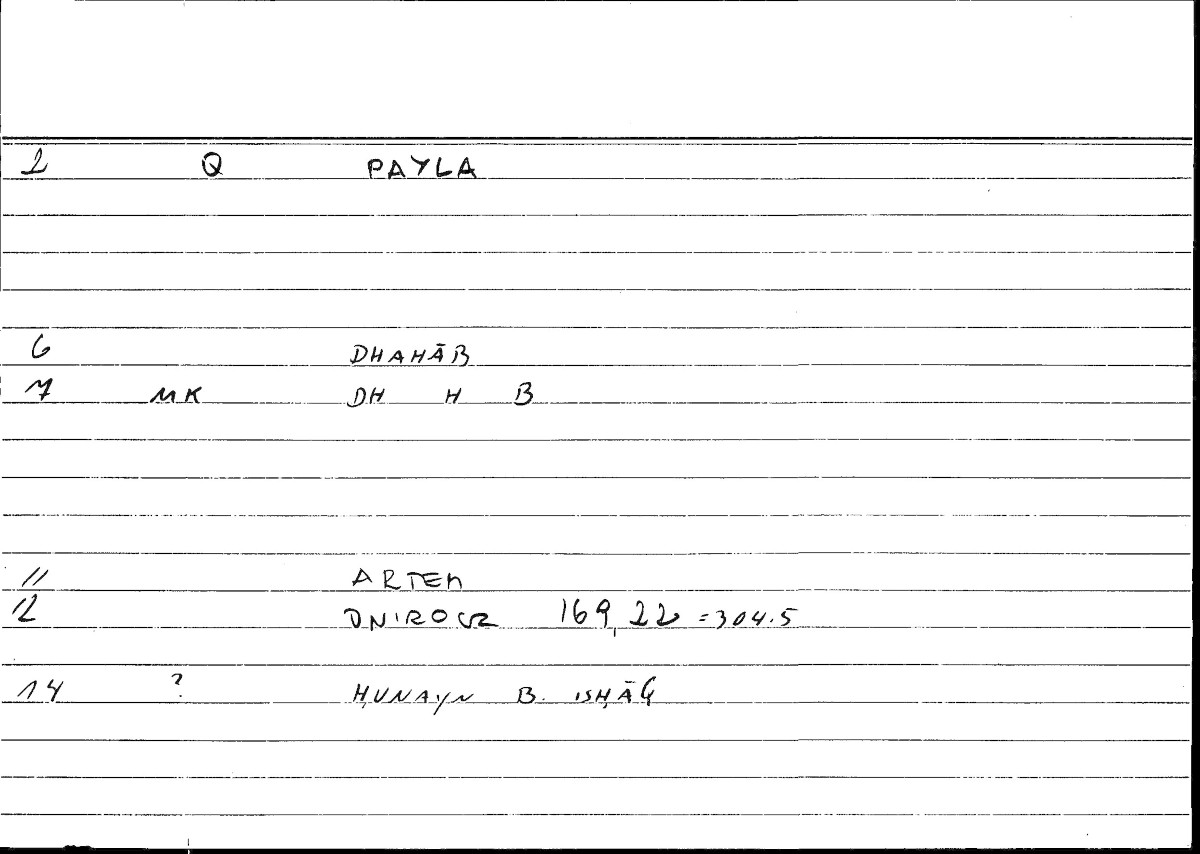 2 Q PAYLA
6 DHAHĀB
7 MK DH H B
11 ARTEM
12 ONIROCR 169,22 = 304.5
14 ? ḤUNAYN B. ISḤĀQ